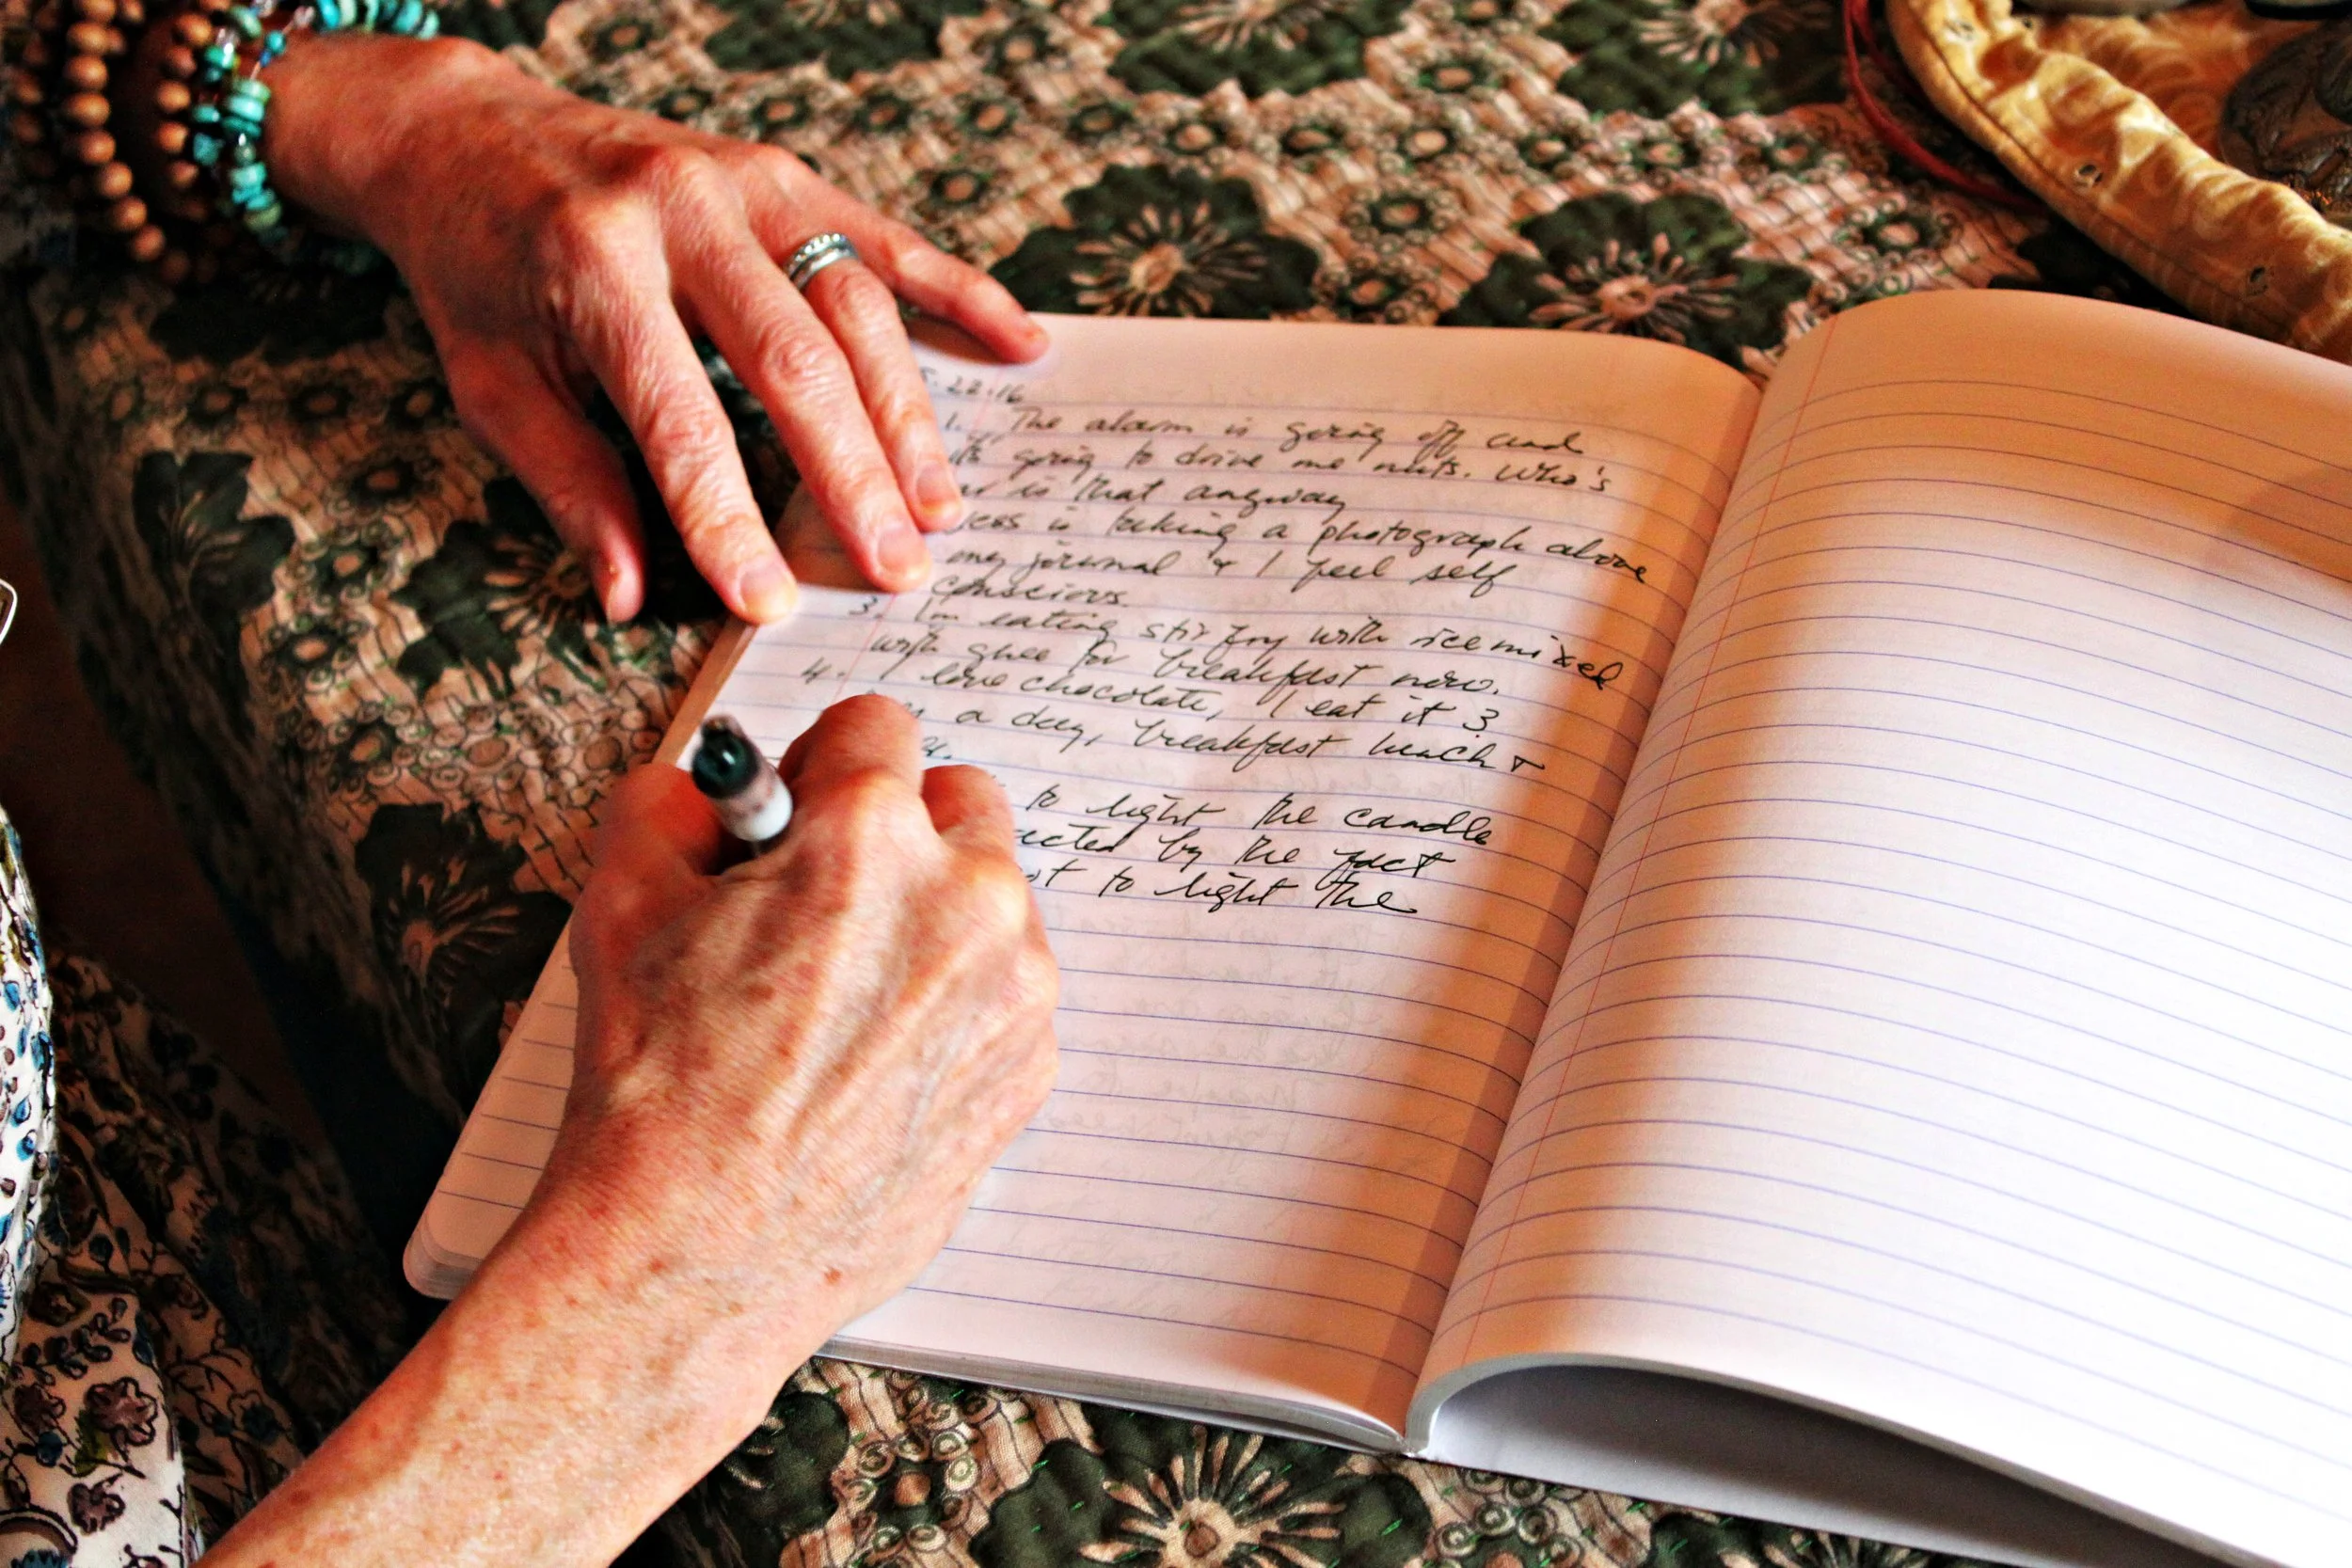 5.22.16
1. The alarm is going off and
it's going to drive me nuts. Who's
is that anyway
is taking a photograph above
my journal & I feel self
conscious.
3. I'm eating stir fry with rice mixed
with ghee for breakfast now.
4. I love chocolate, I eat it 3
a day, breakfast lunch &
to light the candle
by the fact
to light the